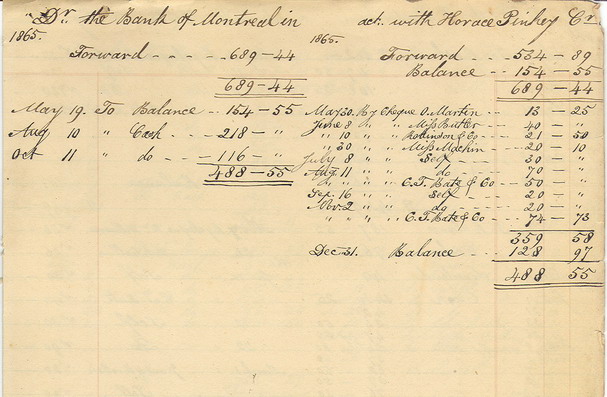 Dr. the Bank of Montreal in acct. with Horace Pinhey Cr.
1865. 1865.
Forward - - - - 689-44 Forward - - 534 - 89
Balance - - 154 - 55
689-44 689 - 44
May 19. To Balance - - 154-55 May 30. By Cheque O. Martin - - - 13 - 25
June 8 " " " Miss Butler - - - 40 - "
Aug 10 " Cash - - - 218 - " " 10 " " " Robinson & Co - - 21 - 50
" 30 " " " Miss Machin - - - 20 - 10
Oct 11 " do - - - 116 - " July 8 " " " Self - - - 30 - "
488-55 Aug. 11 " " " do - - - 70 - "
" " " " " C. T. Bate & Co - - 50 - "
Sep. 16 " " " Self - - - 20 - "
Nov. 2 " " " do - - - 20 - "
" " " " " C. T. Bate & Co - - - 74 - 73
359 58
Dec. 31. Balance - - - 128 97
488 55